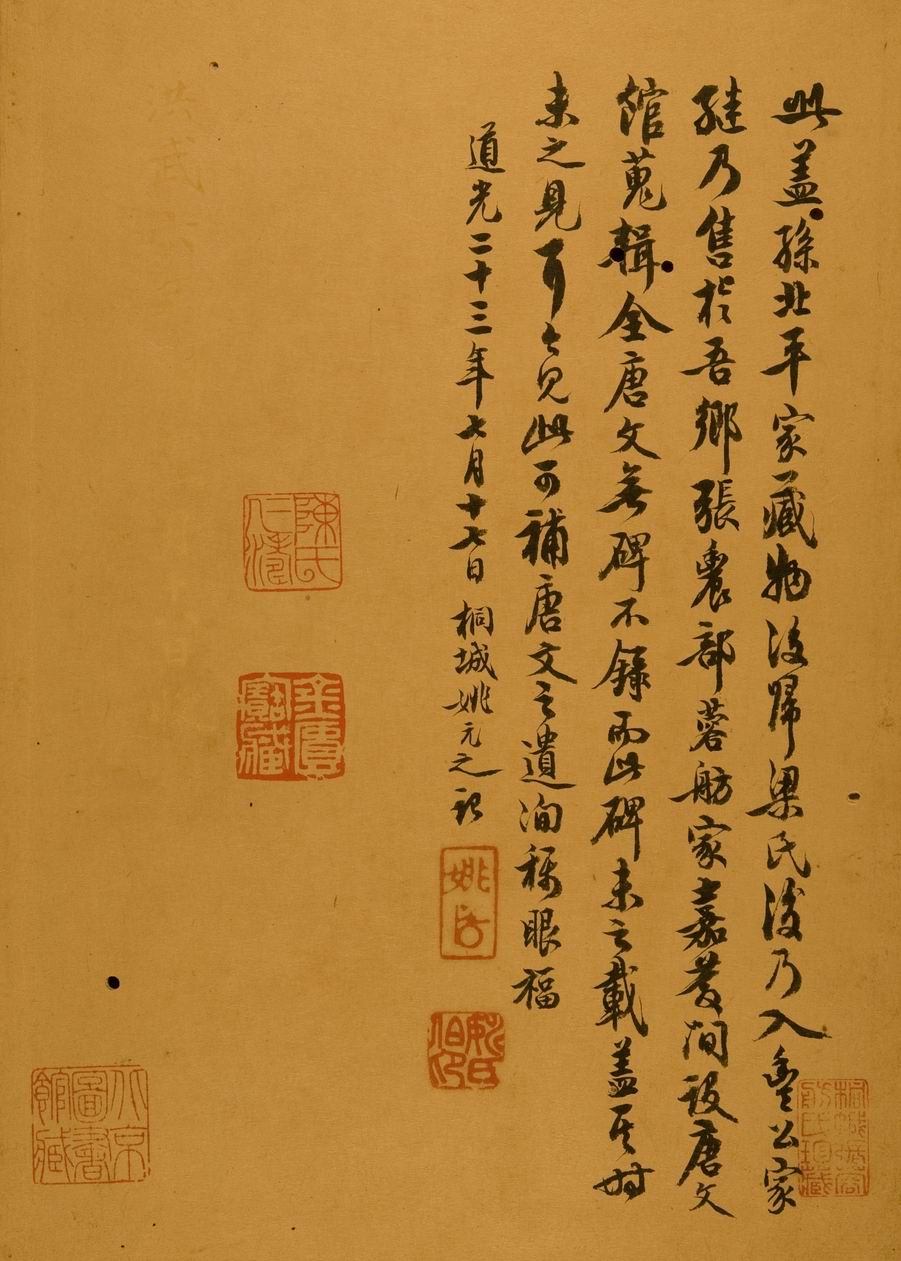 此蓋孫北平家藏物後歸梁氏後乃入豐公家
繼乃售於吾鄉張農部蓉舫家嘉慶間設唐文
館蒐輯全唐文無碑不錄而此碑未之載蓋其時
未之見耳今見此可補唐文之遺洵稱眼福
道光二十三年七月十七日桐城姚元之記
姚
姚氏伯印
陳氏仁濤
金匱寶藏
北京圖書館藏
桐城張蓉舫氏珍藏
洪武